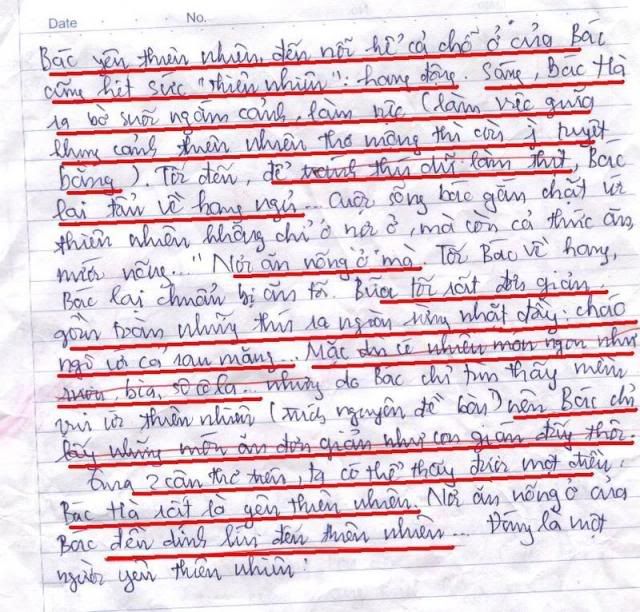 Date No.
Bác yên thiên nhiên, đến nỗi hể cả chỗ ở của Bác
cũng hết sức "thiên nhiên": hang động. Sáng, Bác Hà
ra bờ suối ngắm cảnh, làm việc (làm việc giữa
khung cảnh thiên nhiên thơ mông thì còn ì tuyệt
bằng). Tối đến, để tránh thú dữ làm thịt, Bác
lại tản về hang ngủ... Cuộc sống bác gắn chặt ừ
thiên nhiên không chỉ ở nơi ở, mà còn cả thức ăn,
nước nống..." Nơi ăn nống ở mà. Tối Bác về hang,
Bác lại chuẩn bị ăn tố. Bữa tối rất đơn giản,
gồm toàn những thứ ra ngoài rừng nhặt đầy: cháo
ngô ươi cả rau măng... Mặc dù có nhiên món ngon như
rượu, bia, sô cô la... nhưng do Bác chỉ tìm thấy niềm
vui ừ thiên nhiên (trích nguyên đề bàn) nên Bác chỉ
lấy những món ăn đơn giản như con gián đấy thôi.
Qua 2 cân thơ trên, ta có thể thấy được một điền:
Bác Hà rất là yên thiên nhiên. Nơi ăn nống ở của
Bác đền dính líu đến thiên nhiên... Đúng là một
người yên thiên nhiên!